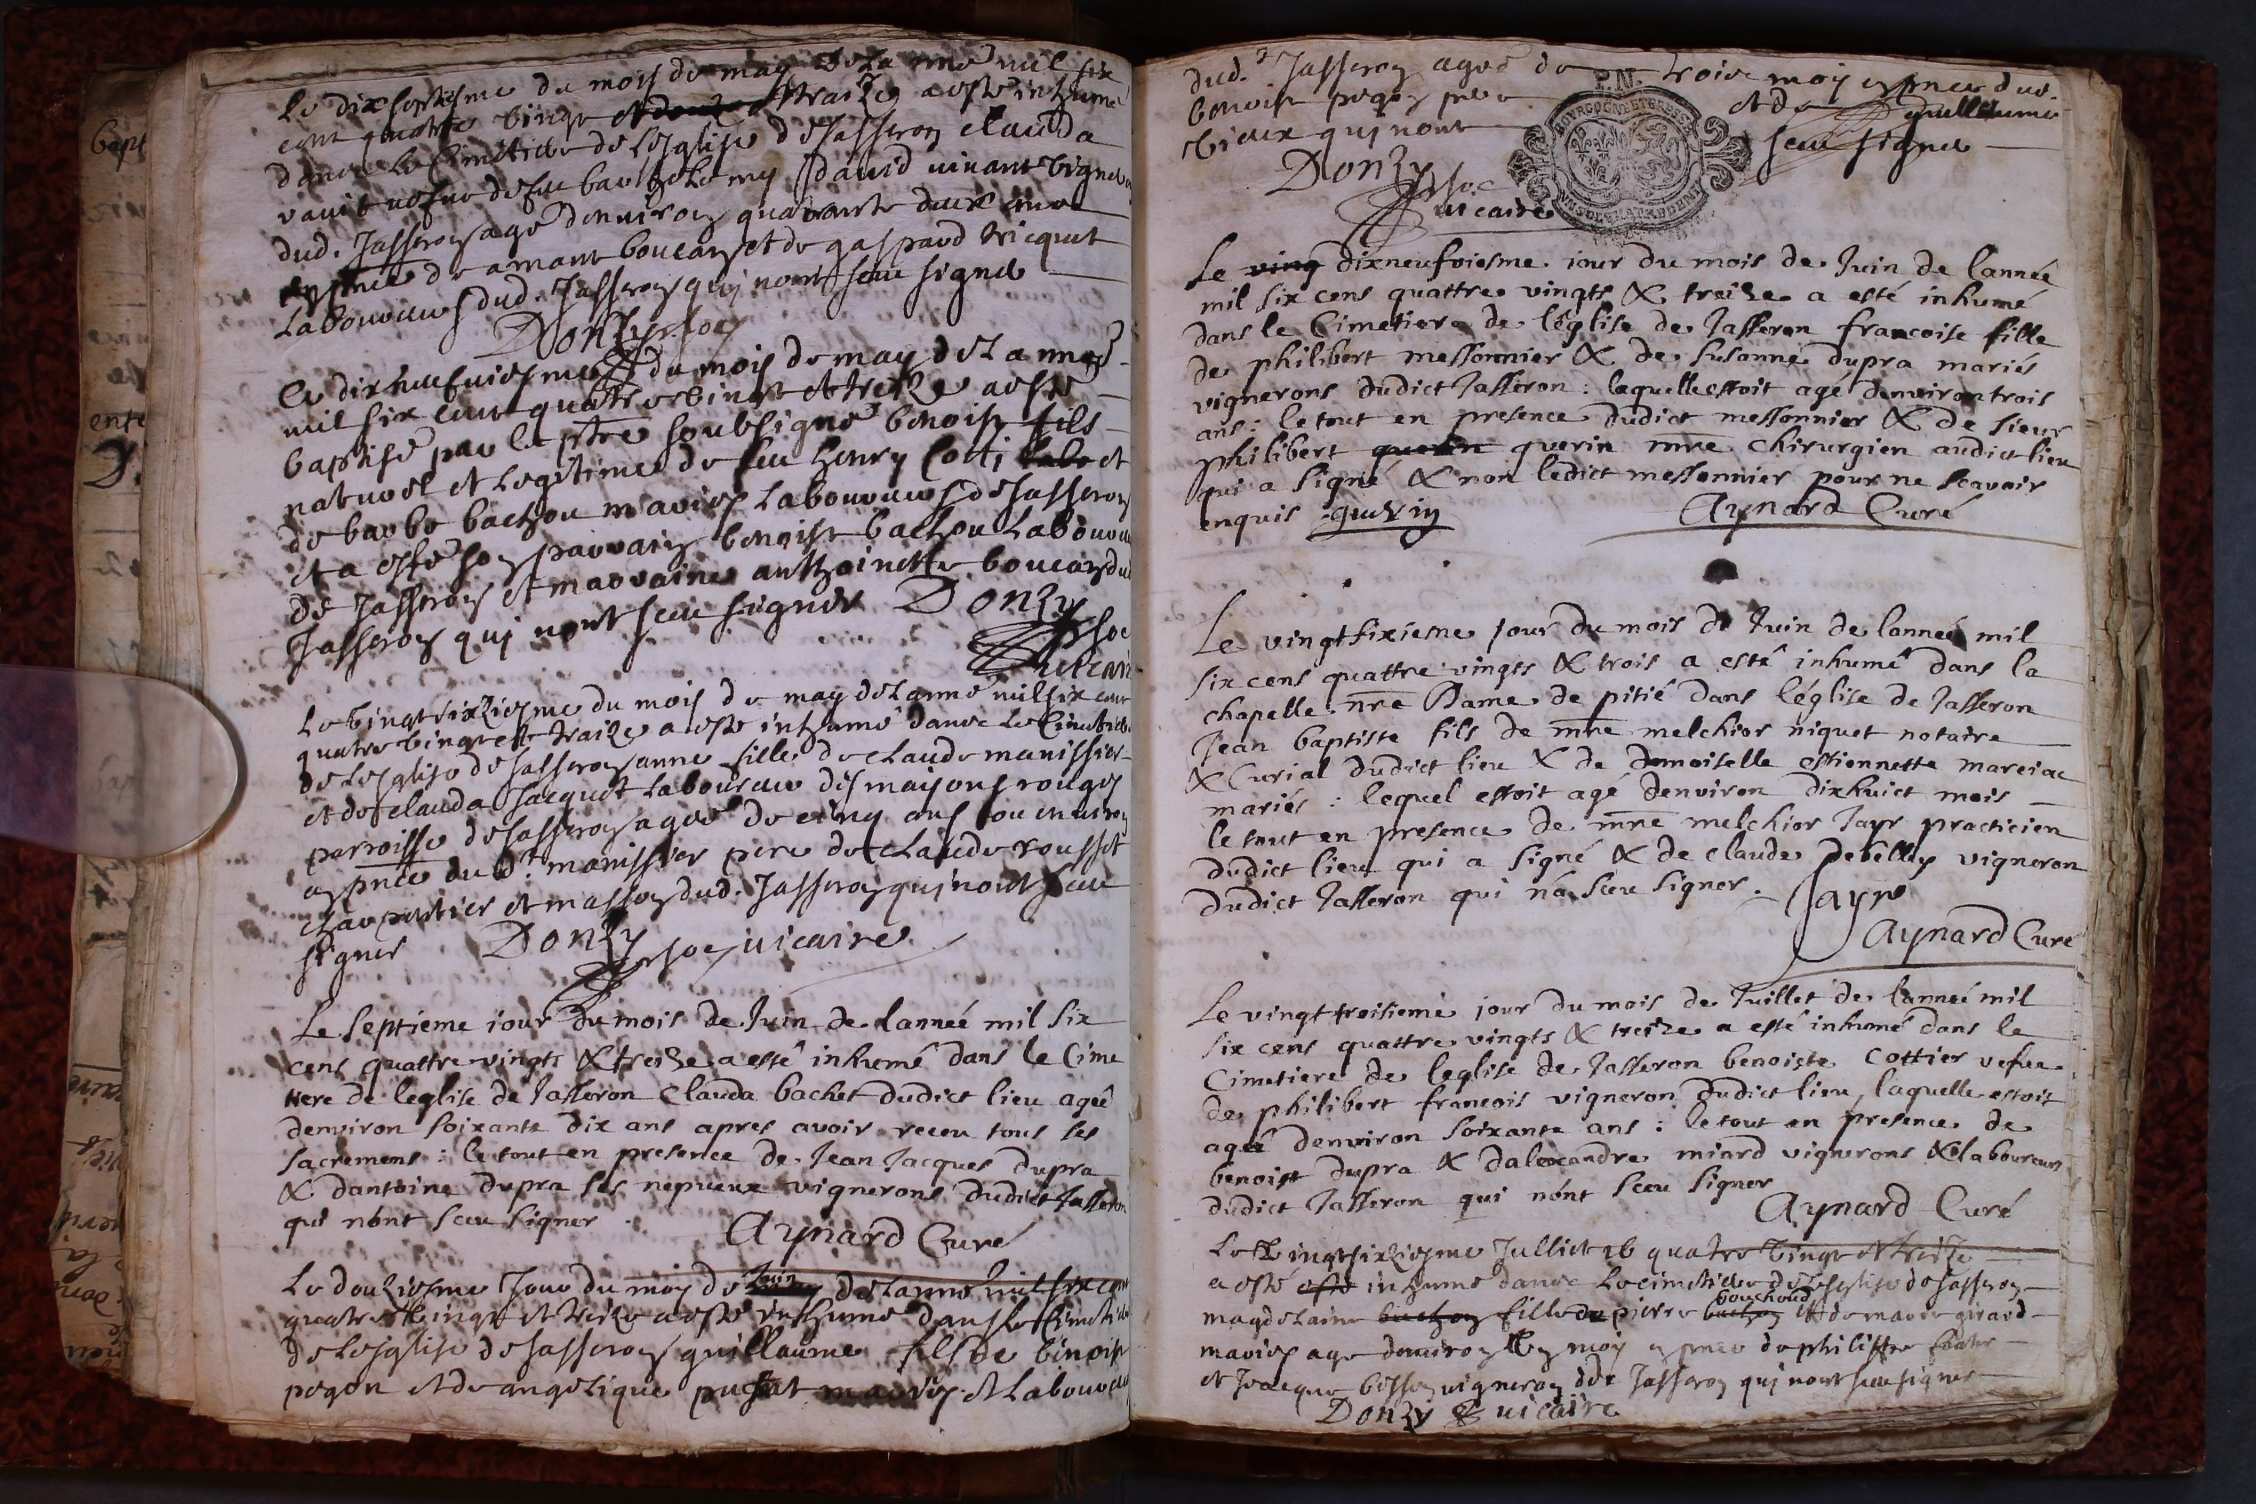 Le dixseptiesme du mois de may de La nné mil six
cent quattre vingt et traize a esté inhumé
dans Le Cimetiere de L'esglise de Jasseron Clauda
vefue de feu barthelemy david vivant vigneron
dud. Jasseron agé d'environ quarante deux ans
en pnce de amant boucan et de gaspard tricquet
Laboureurs dud. Jasseron qui nont sceu signer
Donzy
Le dixneufviesme du mois de may de La nneé
mil six cent quatre vingt et treize a esté
baptisé par le pbre soubsigné benoist fils
naturel et Legitime de feu henry Cotti et
de barbe bachou mariés Laboureurs de Jasseron
et a esté son parrain benoist bachou Laboureur
de Jasseron et marraine anthoinette boucan du
Jasseron qui nont sceu signer Donzy
vicaire
Le vingt sixziesme du mois de may de Lanné mil six cent
quatre vingt et traize a esté inhumé dans Le Cimetiere
de L'esglise de Jasseron anne fille de claude manissier
et de clauda Jacquet Laboureur des maisons rouges
parroisse de Jasseron ageé de cinq ans ou environ
en pnce du d.t manissier pere de claude rousset
charpentier et masson dud. Jasseron qui nont sceu
signer Donzy vicaire
Le septieme iour du mois de Juin de lanneé mil six
cens quattre vingts & treize a esté inhumé dans le Cime
tiere de leglise de Jasseron Clauda bachet dudict lieu ageé
denviron soixante dix ans apres avoir receu tous ses
sacremens : le tout en presence de Jean Jacques dupra
& dantoine dupra ses nepueux vignerons dudict Jasseron
qui n'ont sceu signer .
Aynard Curé
Le douziesme Jour du moy de Juin de Lanné mil six cent
quatre vingt et treize a esté inhumé dans Le Cimetiere
de L'esglise de Jasseron guillaume fils de benoist
pegon et de angelique puchat mariés et Laboureur
dud.t Jasseron ageé de trois moy en pnce dud.
benoist pegon pere et de guillaume
vieux qui nont sceu signer
P.N.
BOURGOGNE ET BRESSE
Donzy
vicaire
Le ving dixneufviesme iour du mois de Juin de lanneé
mil six cens quattre vingts & treize a esté inhumé
dans le Cimetiere de léglise de Jasseron francoise fille
de philibert messonnier & de susanne dupra mariés
vignerons dudict Jasseron : laquelle estoit ageé denviron trois
ans : le tout en presence dudict messonnier & de sieur
philibert querin querin mre chirurgien audict lieu
qui a signé & non ledict messonnier pour ne scavoir
enquis . quérin
Aynard Curé
Le vingt sixiesme jour du mois de Juin de lanneé mil
six cens quattre vingts & trois a esté inhumé dans la
chapelle nre Dame de pitié dans léglise de Jasseron
Jean baptiste fils de mre melchior niquet notaire
& Curial dudict lieu & de demoiselle estiennette marciac
mariés : lequel estoit agé denviron dixhuict mois
le tout en presence de mre melchior Jayr practicien
dudict lieu qui a signé & de claude debelley vigneron
dudict Jasseron qui n'a sceu signer .
Jayr
Aynard Curé
Le vingt troisieme jour du mois de Juillet de lanneé mil
six cens quattre vingts & treize a esté inhumé dans le
Cimetiere de leglise de Jasseron benoiste Cottier vefue
de philibert francois vigneron dudict lieu, laquelle estoit
ageé denviron soixante ans : le tout en presence de
benoist dupra & dalexandre miard vignerons & laboureurs
dudict Jasseron qui n'ont sceu signer
Aynard Curé
Le vingtsixziesme Julliet 16 quatre vingt et treize
a esté esté inhumé dans Le cimetiere de Lesglise de Jasseron
bouchoud
magdelaine bachou fille de pierre bachou et de marie girard
mariés agé denviron moy en pnce de philippe
et Jacque besson vigneron de Jasseron qui nont sceu signer
Donzy vicaire